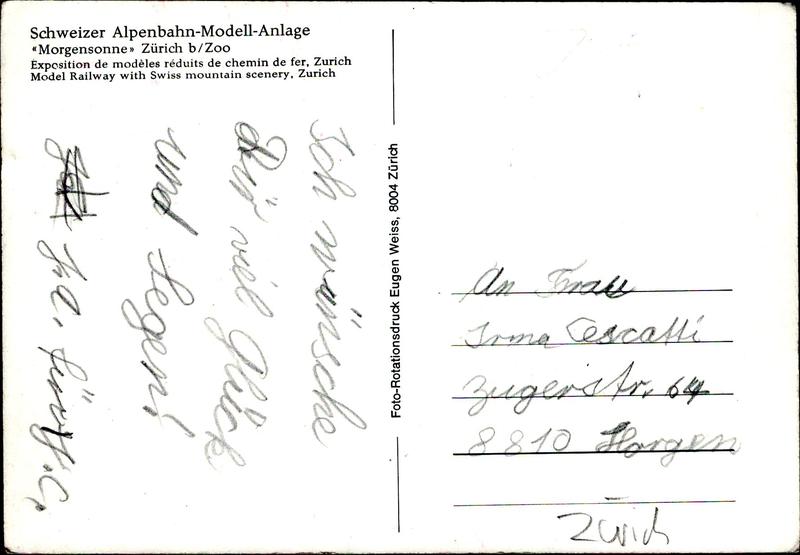 Schweizer Alpenbahn-Modell-Anlage
«Morgensonne» Zürich b/Zoo
Exposition de modèles réduits de chemin de fer, Zurich
Model Railway with Swiss mountain scenery, Zurich
Ich wünsche
Dir viel Glück
und Segen!
Foto-Rotationsdruck Eugen Weiss, 8004 Zürich
An Frau
Irma Cescatti
Zugerstr. 64
8810 Horgen
Zürich